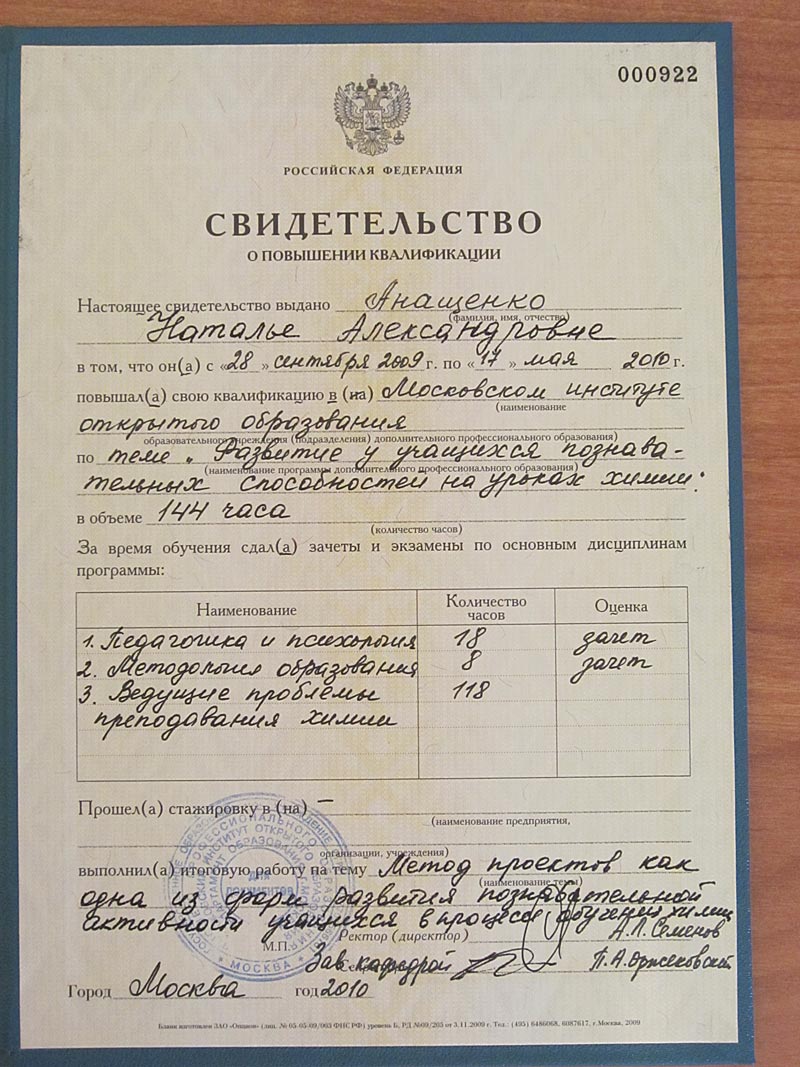 000922
РОССИЙСКАЯ ФЕДЕРАЦИЯ
СВИДЕТЕЛЬСТВО
О ПОВЫШЕНИИ КВАЛИФИКАЦИИ
Настоящее свидетельство выдано Анащенко
(фамилия, имя, отчество)
Наталье Александровне
в том, что он(а) с «28» сентября 2009 г. по «17» мая 2010 г.
повышал(а) свою квалификацию в (на) Московском институте
(наименование
открытого образования
образовательного учреждения (подразделения) дополнительного профессионального образования)
по теме „Развитие у учащихся познава-
(наименование программы дополнительного профессионального образования)
тельных способностей на уроках химии"
в объеме 144 часа
(количество часов)
За время обучения сдал(а) зачеты и экзамены по основным дисциплинам
программы:
Наименование Количество часов Оценка
1. Педагогика и психология 18 зачет
2. Методология образования 8 зачет
3. Ведущие проблемы 118
преподавания химии
Прошел(а) стажировку в (на) –
(наименование предприятия,
организации, учреждения)
выполнил(а) итоговую работу на тему Метод проектов как
(наименование темы)
одна из форм развития познавательной
активности учащихся в процессе обучения химии
Ректор (директор) А.Л. Семенов
М.П.
Зав. кафедрой П.А. Оржековский
Город Москва год 2010
МОСКВА
Бланк изготовлен ЗАО «Опцион» (лиц. № 05-05-09/003 ФНС РФ) уровень Б, РД №09/205 от 3.11.2009 г. Тел.: (495) 6486068, 6087617, г.Москва, 2009